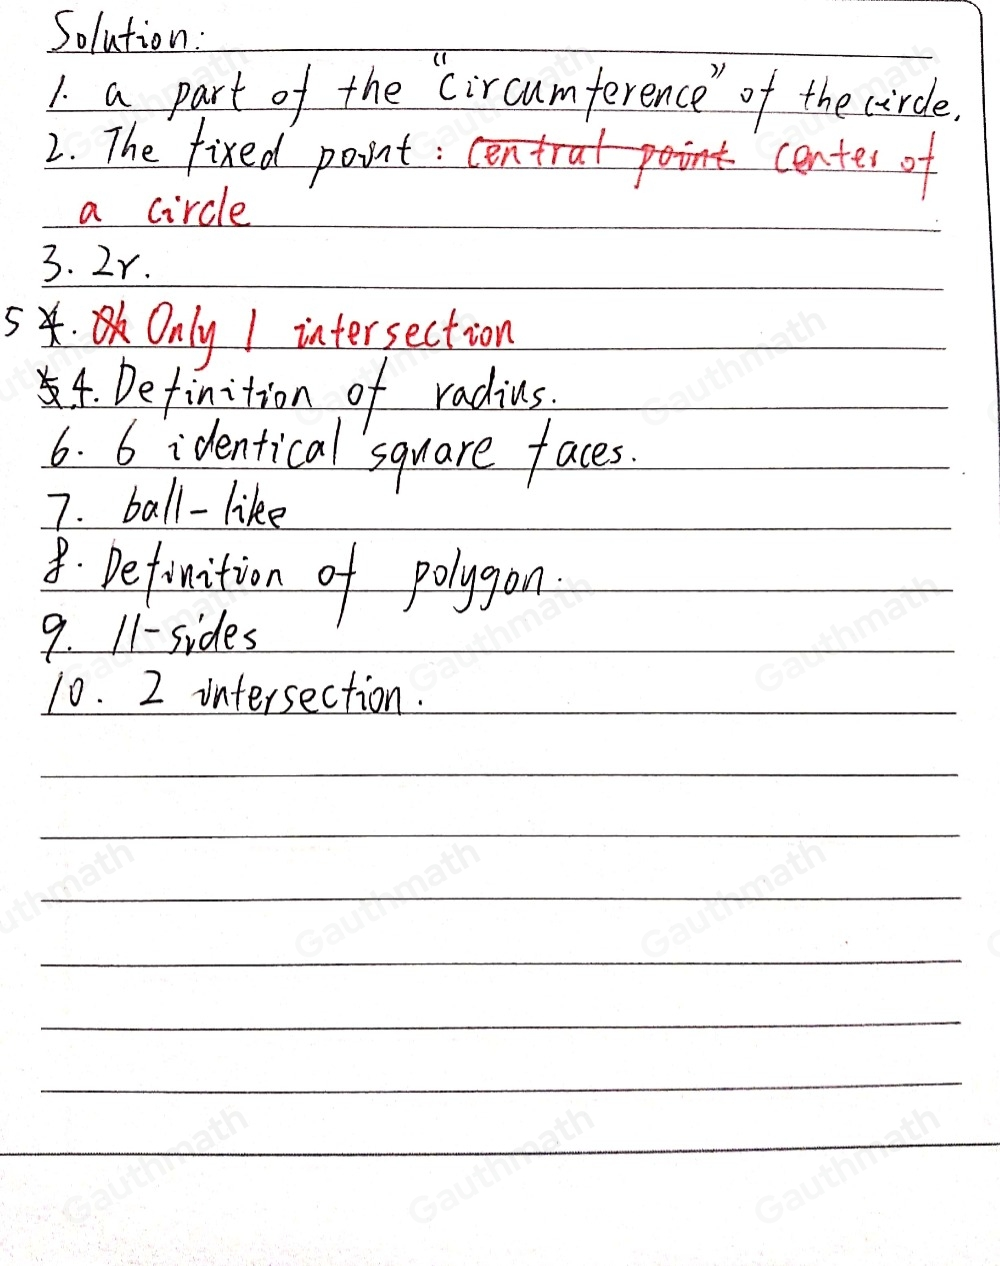 Solution:
1. a part of the "circumference" of the circle.
2. The fixed point: central point center of
a circle
3. 2r.
5 4. Oh Only 1 intersection
5 4. Definition of radius.
6. 6 identical square faces.
7. ball-like
8. Definition of polygon.
9. 11-sides
10. 2 intersection.
Gauthmath